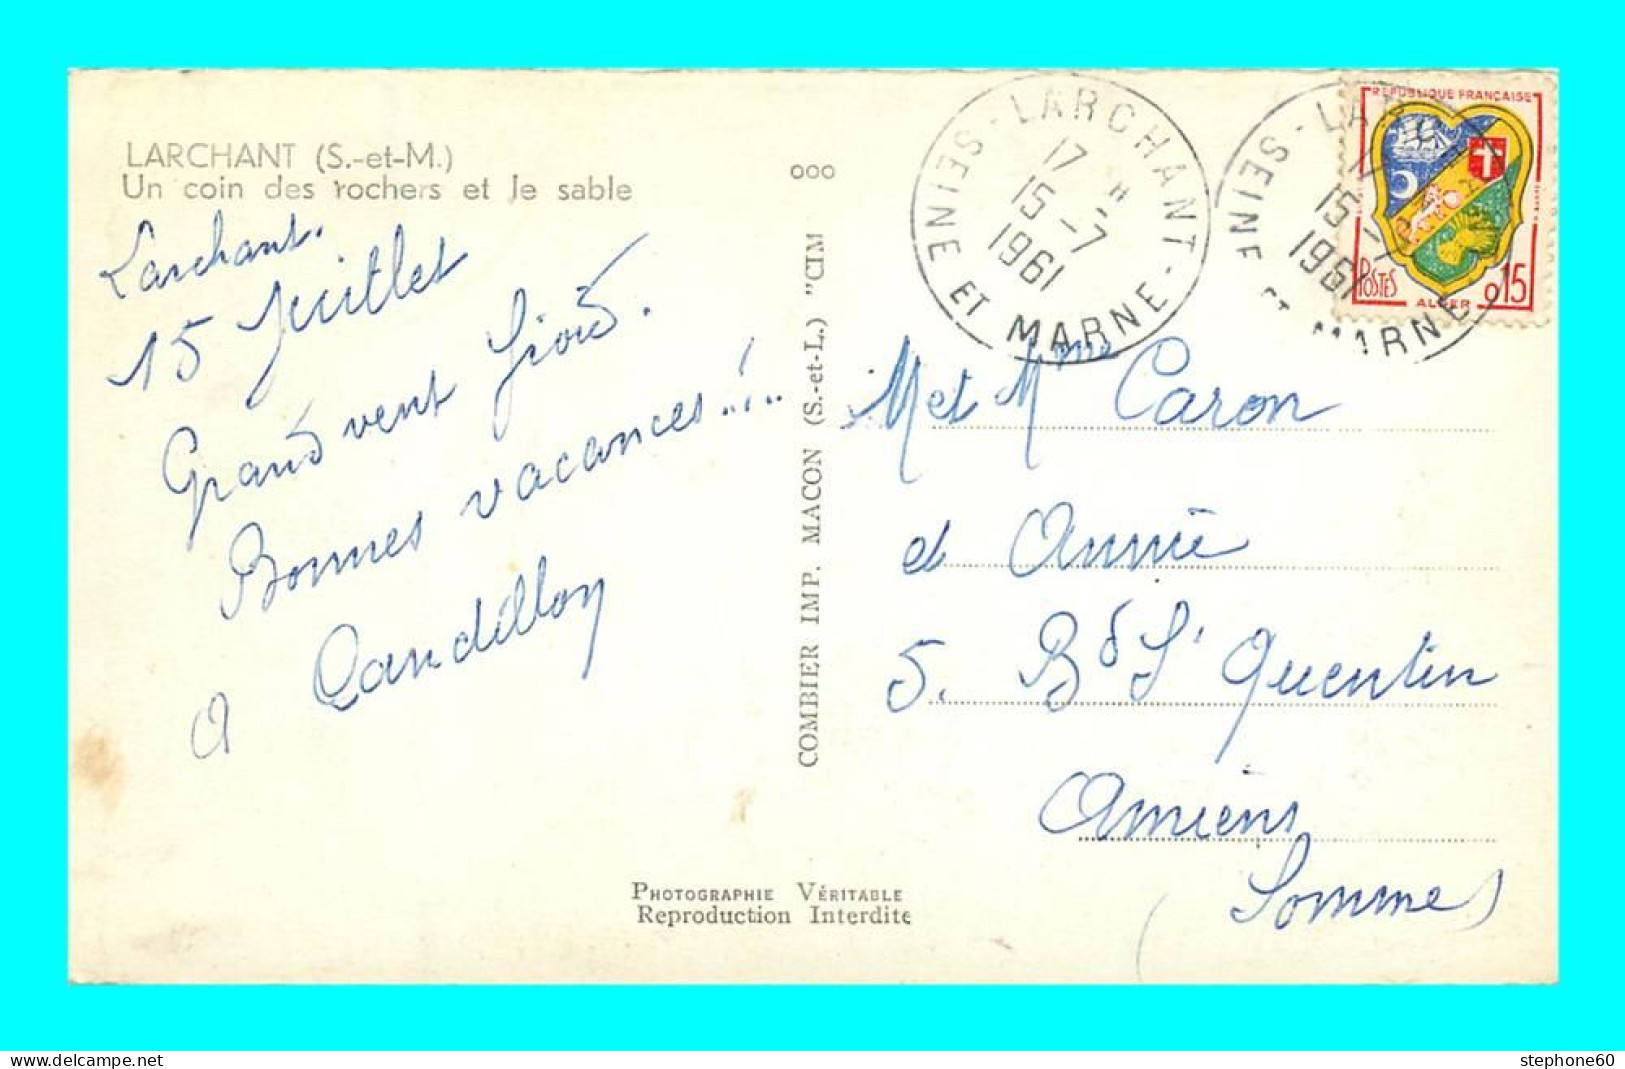 LARCHANT (S.-et-M.)
Un coin des rochers et le sable
Larchant.
15 Juillet
Grand vent froid.
Bonnes vacances...!..
A Candillon
ooo
COMBIER IMP. MACON (S.-et-L.) "CIM
PHOTOGRAPHIE VÉRITABLE
Reproduction Interdite
LARCHANT -
SEINE ET MARNE -
17 H
15 -7
1961
LARCHANT
SEINE ET MARNE
17
15 -7
1961
REPUBLIQUE FRANÇAISE
POSTES
ALGER
0,15
M et Mme Caron
et Annie
5. Bd St Quentin
Amiens
(Somme)
stephone60